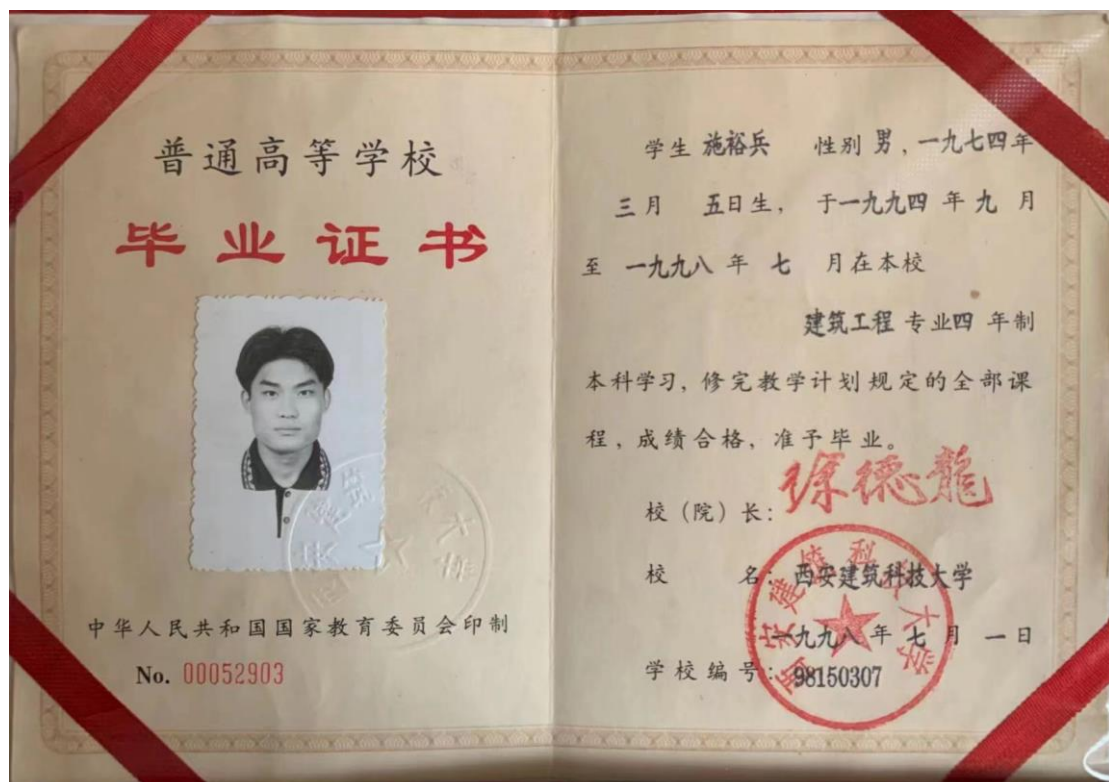 普通高等学校
毕业证书
中华人民共和国国家教育委员会印制
No. 00052903
学生 施裕兵 性别 男，一九七四年
三月 五日生， 于一九九四 年 九 月
至 一九九八 年 七 月在本校
建筑工程 专业四 年制
本科学习，修完教学计划规定的全部课
程，成绩合格，准予毕业。
校（院）长：徐德龍
校 名：西安建筑科技大学
一九九八 年 七 月 一日
学校编号：98150307
西安建筑科技大学